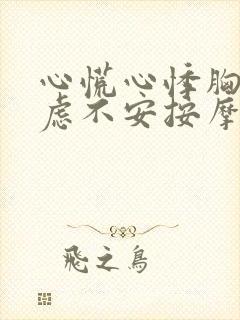 心慌心悸胸
虑不安按摩
飛之鳥